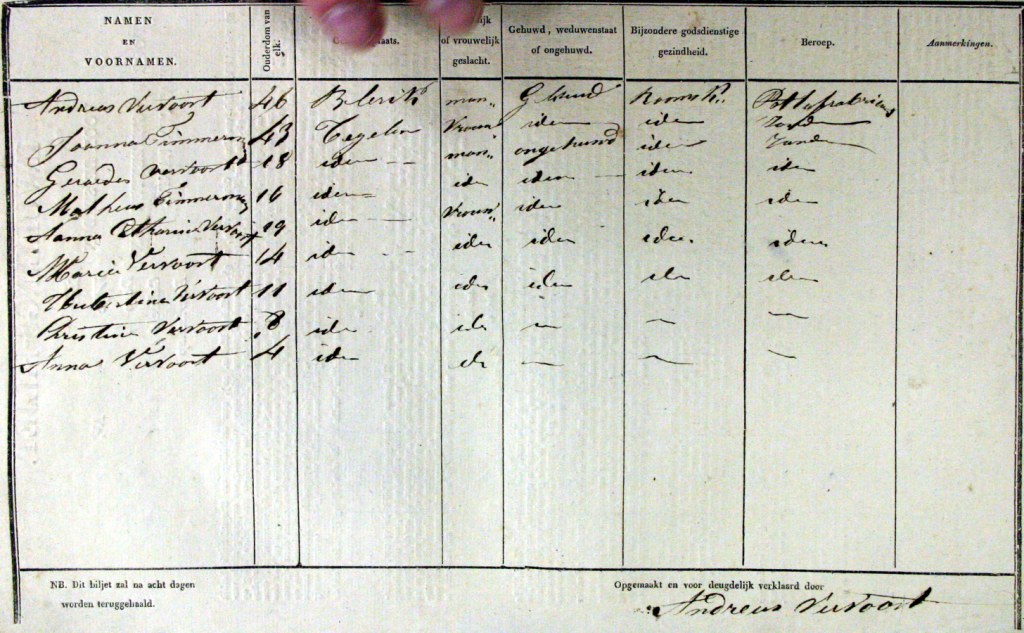 NAMEN EN VOORNAMEN. Ouderdom van elk. lijk of vrouwelijk geslacht. Gehuwd, weduwenstaat of ongehuwd. Bijzondere godsdienstige gezindheid. Beroep. Aanmerkingen.
Andreas Vervoort 46 Blerik man Gehuwd Roomsk.
Joanna Timmerm 43 Tegelen vrouw iden iden
Gerardes Vervoort 18 iden man ongehuwd iden
Matheus Timmerm 16 iden ide iden iden iden
Janna Catharina Vervoort 19 iden vrouw iden iden iden
Maria Vervoort 14 iden iden iden iden iden
Hubertina Vervoort 11 iden iden iden iden iden
Christina Vervoort 8 iden ide
Anna Vervoort 4 iden ide
NB. Dit biljet zal na acht dagen
worden teruggehaald.
Opgemaakt en voor deugdelijk verklaard door
Andreas Vervoort